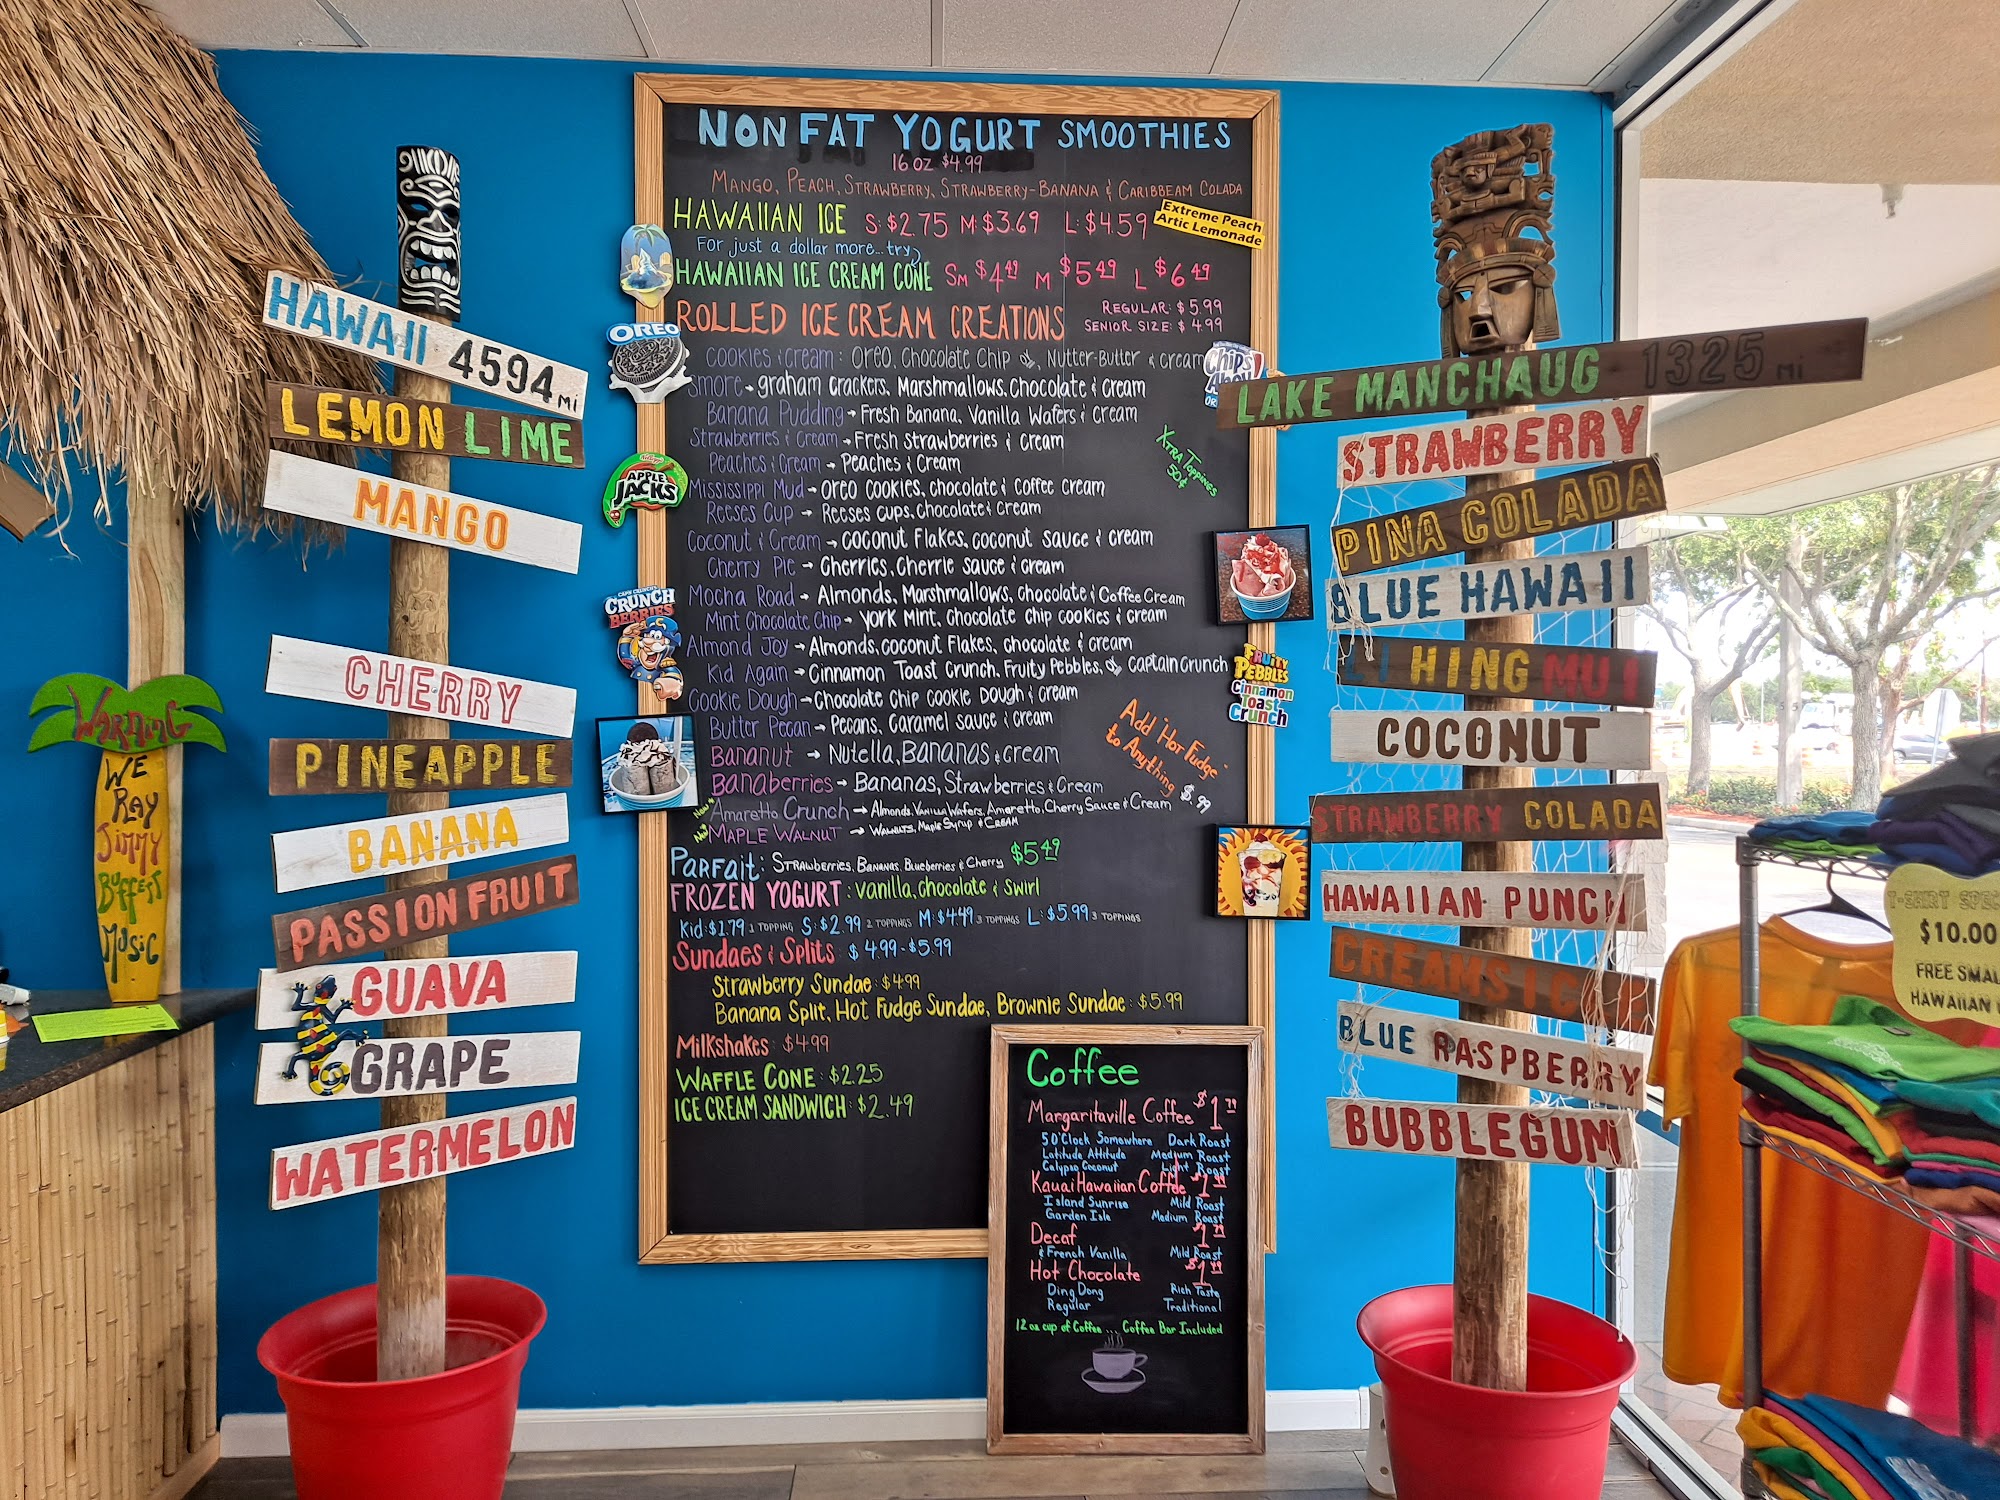 HAWAII 4594 mi
LEMON LIME
MANGO
CHERRY
PINEAPPLE
BANANA
PASSION FRUIT
GUAVA
GRAPE
WATERMELON
WARNING
WE
RAY
JIMMY
BUFFETT
MUSIC
NON FAT YOGURT SMOOTHIES
16 OZ $4.99
MANGO, PEACH, STRAWBERRY, STRAWBERRY-BANANA & CARIBBEAM COLADA
HAWAIIAN ICE S: $2.75 M: $3.69 L: $4.59
Extreme Peach
Artic Lemonade
For just a dollar more... try
HAWAIIAN ICE CREAM CONE SM $4.49 M $5.49 L $6.49
ROLLED ICE CREAM CREATIONS
REGULAR: $5.99
SENIOR SIZE: $4.99
COOKIES & CREAM: OREO, CHOCOLATE CHIP or, NUTTER-BUTTER & CREAM
Smore → graham crackers, Marshmallows, Chocolate & Cream
Banana Pudding → Fresh Banana, Vanilla Wafers & Cream
Strawberries & Cream → Fresh Strawberries & Cream
Peaches & Cream → Peaches & Cream
Mississippi Mud → Oreo Cookies, chocolate & Coffee Cream
Reeses Cup → Reeses cups, Chocolate & Cream
Coconut & Cream → Coconut Flakes, coconut sauce & cream
Cherry Pie → Cherries, Cherrie Sauce & Cream
Mocha Road → Almonds, Marshmallows, chocolate & Coffee Cream
Mint Chocolate Chip → York Mint, Chocolate chip cookies & cream
Almond Joy → Almonds, coconut Flakes, chocolate & cream
Kid Again → Cinnamon Toast Crunch, Fruity Pebbles, or Captain Crunch
Cookie Dough → Chocolate Chip Cookie Dough & cream
Butter Pecan → Pecans, Caramel sauce & cream
Bananut → Nutella, Bananas & cream
Banaberries → Bananas, Strawberries & Cream
New Amaretto Crunch → Almonds, Vanilla Wafers, Amaretto, Cherry Sauce & Cream
New Maple Walnut → Walnuts, Maple Syrup & Cream
Xtra Toppings
50¢
Add "Hot Fudge"
to Anything $.99
Parfait: Strawberries, Bananas, Blueberries & Cherry $5.49
FROZEN YOGURT: Vanilla, Chocolate & Swirl
Kid: $1.79 1 TOPPING S: $2.99 2 TOPPINGS M: $4.49 3 TOPPINGS L: $5.99 3 TOPPINGS
Sundaes & Splits $4.99-$5.99
Strawberry Sundae: $4.99
Banana Split, Hot Fudge Sundae, Brownie Sundae: $5.99
Milkshakes: $4.99
WAFFLE CONE: $2.25
ICE CREAM SANDWICH: $2.49
OREO
Kellogg's
APPLE
JACKS
CAP'N CRUNCH'S
CRUNCH
BERRIES
Chips
Ahoy!
FRUITY
PEBBLES
Cinnamon
Toast
Crunch
Coffee
Margaritaville Coffee $1.79
5 O'Clock Somewhere Dark Roast
Latitude Attitude Medium Roast
Calypso Coconut Light Roast
Kauai Hawaiian Coffee $1.99
Island Sunrise Mild Roast
Garden Isle Medium Roast
Decaf $1.79
& French Vanilla Mild Roast
Hot Chocolate $1.49
Ding Dong Rich Taste
Regular Traditional
12 oz cup of Coffee ... Coffee Bar Included
LAKE MANCHAUG 1325 mi
STRAWBERRY
PINA COLADA
BLUE HAWAII
LI HING MUI
COCONUT
STRAWBERRY COLADA
HAWAIIAN PUNCH
CREAMSIC
BLUE RASPBERRY
BUBBLEGUM
T-SHIRT SPEC
$10.00
FREE SMAL
HAWAIIAN